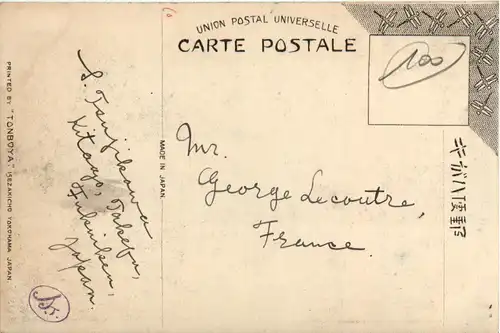 UNION POSTAL UNIVERSELLE
CARTE POSTALE
100
Mr.
George Lecoutre,
France.
S. Tsujikawa
Kitago, Takefu,
Fukuiken,
Japan.
MADE IN JAPAN
PRINTED BY "TONBOYA," ISEZAKICHO YOKOHAMA JAPAN
キガハ便郵